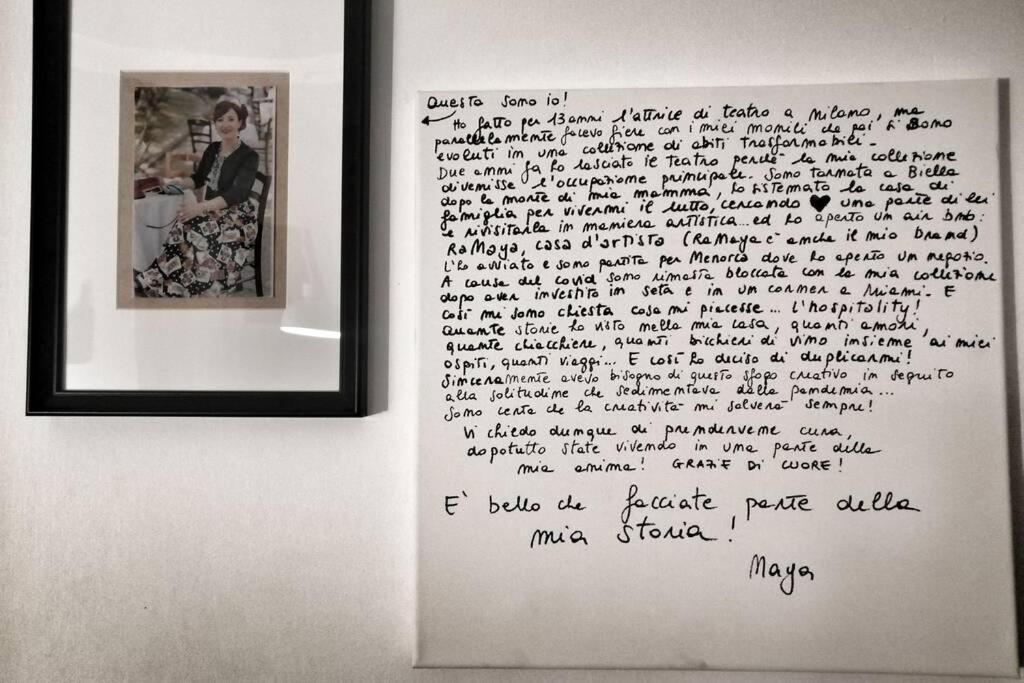 Questa sono io!
Ho fatto per 13 anni l'attrice di teatro a Milano, ma
parallelamente facevo fiere con i miei monili che poi si sono
evoluti in una collezione di abiti trasformabili.
Due anni fa ho lasciato il teatro perchè la mia collezione
divenisse l'occupazione principale. Sono tornata a Biella
dopo la morte di mia mamma, ho sistemato la casa di
famiglia per vivermi il lutto, cercando ♥ una parte di lei
e rivisitarla in maniera artistica... ed ho aperto un air bnb:
RaMaya, casa d'artista (RaMaya è anche il mio brand)
L'ho avviato e sono partita per Menorca dove ho aperto un negozio.
A causa del covid sono rimasta bloccata con la mia collezione
dopo aver investito in seta e in un corner a Miami. E
così mi sono chiesta cosa mi piacesse... l'hospitality!
Quante storie ho visto nella mia casa, quanti amori,
quante chiacchiere, quanti bicchieri di vino insieme ai miei
ospiti, quanti viaggi... E così ho deciso di duplicarmi!
Sinceramente avevo bisogno di questo sfogo creativo in seguito
alla solitudine che sedimentava dalla pandemia...
Sono certa che la creatività mi salverà sempre!
Vi chiedo dunque di prendervene cura,
dopotutto state vivendo in una parte della
mia anima! GRAZIE DI CUORE!
E' bello che facciate parte della
mia storia!
Maya